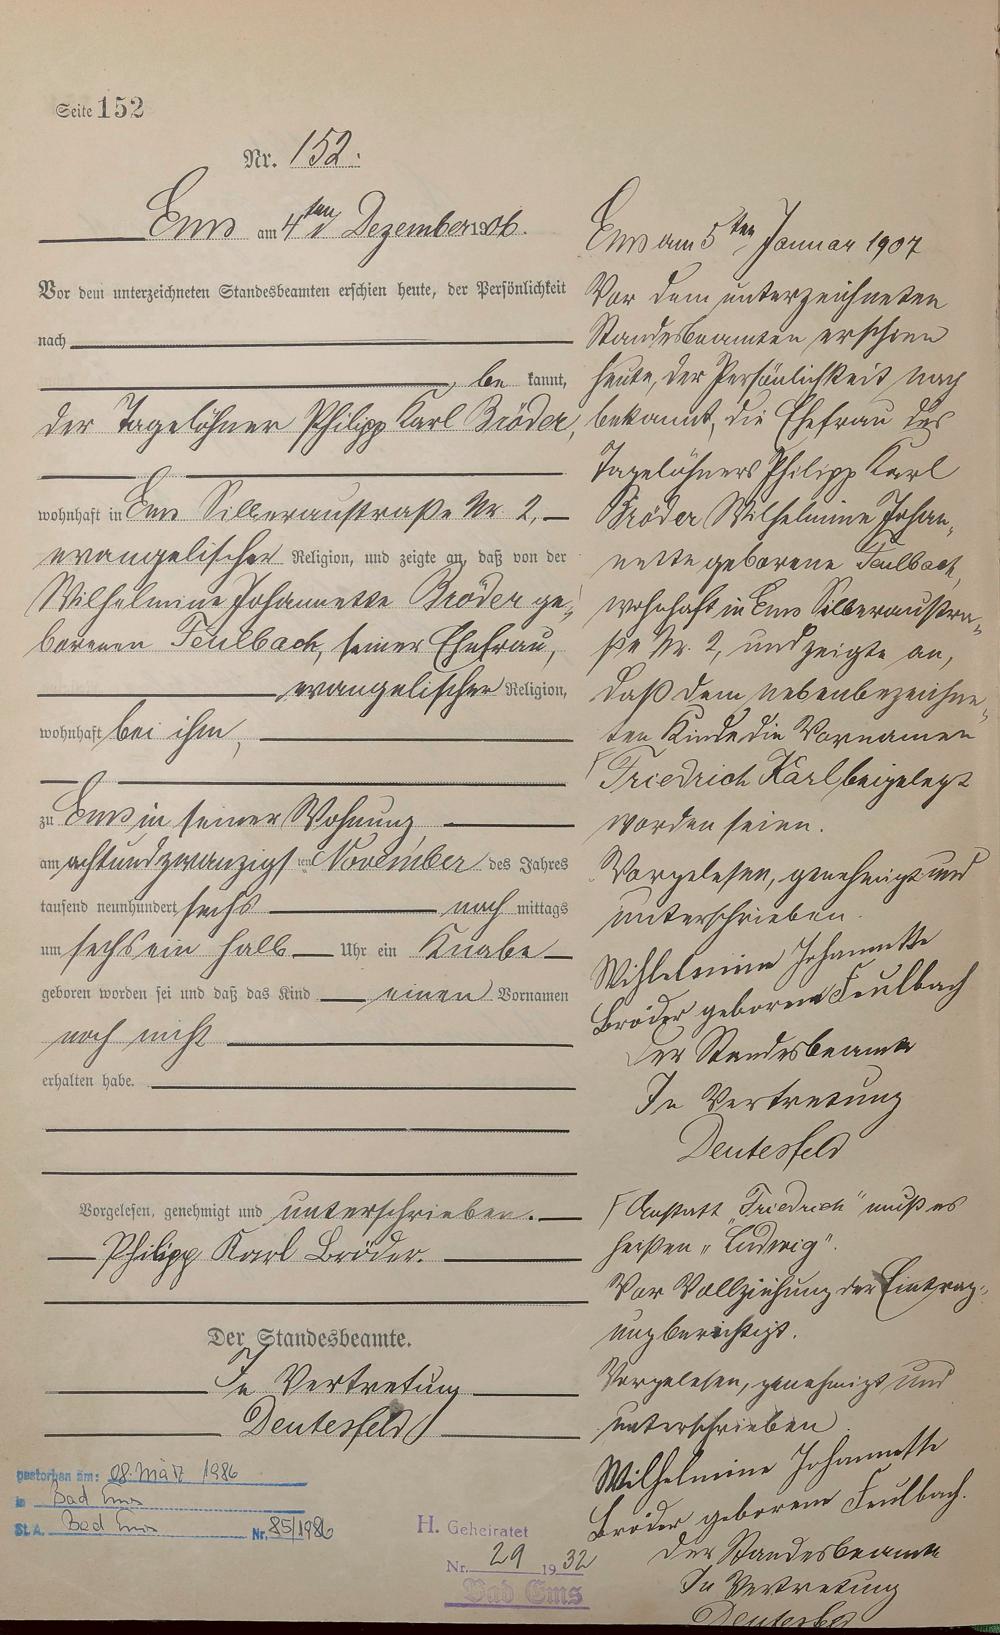 Seite 152
Nr. 152.
Ems am 4ten Dezember 1906.
Vor dem unterzeichneten Standesbeamten erschien heute, der Persönlichkeit
nach
, be kannt,
der Tagelöhner Philipp Karl Bröder,
wohnhaft in Ems Silberaustraße Nr. 2,
evangelischer Religion, und zeigte an, daß von der
Wilhelmine Johannette Bröder ge-
borenen Feulbach, seiner Ehefrau,
evangelischer Religion,
wohnhaft bei ihm,
zu Ems in seiner Wohnung
am achtundzwanzigsten November des Jahres
tausend neunhundert sechs nach mittags
um sechs ein halb Uhr ein Knabe
geboren worden sei und daß das Kind einen Vornamen
noch nicht
erhalten habe.
Vorgelesen, genehmigt und unterschrieben.
Philipp Karl Bröder.
Der Standesbeamte.
In Vertretung
Deutesfeld
gestorben am: 08. März 1986
in Bad Ems
St.A. Bad Ems Nr. 85/1986
H. Geheiratet
Nr. 29 1932
Bad Ems
Ems am 5ten Januar 1907
Vor dem unterzeichneten
Standesbeamten erschien
heute, der Persönlichkeit nach
bekannt, die Ehefrau des
Tagelöhners Philipp Karl
Bröder Wilhelmine Johan-
nette geborene Feulbach,
wohnhaft in Ems Silberaustra-
ße Nr. 2, und zeigte an,
daß dem nebenbezeichne-
ten Kinde die Vornamen
Friedrich Karl beigelegt
worden seien.
Vorgelesen, genehmigt und
unterschrieben.
Wilhelmine Johannette
Bröder geborene Feulbach
Der Standesbeamte
In Vertretung
Deutesfeld
Anstatt „Friedrich" muß es
heißen „Ludwig".
Vor Vollziehung der Eintrag-
ung berichtigt.
Vorgelesen, genehmigt und
unterschrieben
Wilhelmine Johannette
Bröder geborene Feulbach.
Der Standesbeamte
In Vertretung
Deutesfeld